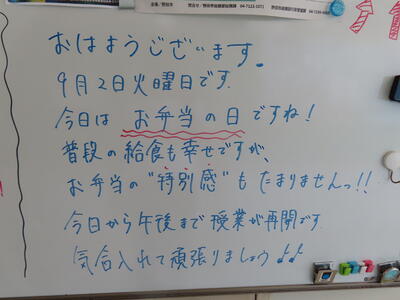 主催／野田市
問合せ／野田市街頭献血推進課 04-7123-1071
おはようございます。
9月2日火曜日です.
今日は お弁当の日ですね！
普段の給食も幸せですが、
お弁当の"特別感"もたまりませんっ！！
今日から午後まで授業が再開です
気合入れて頑張りましょう♪♪